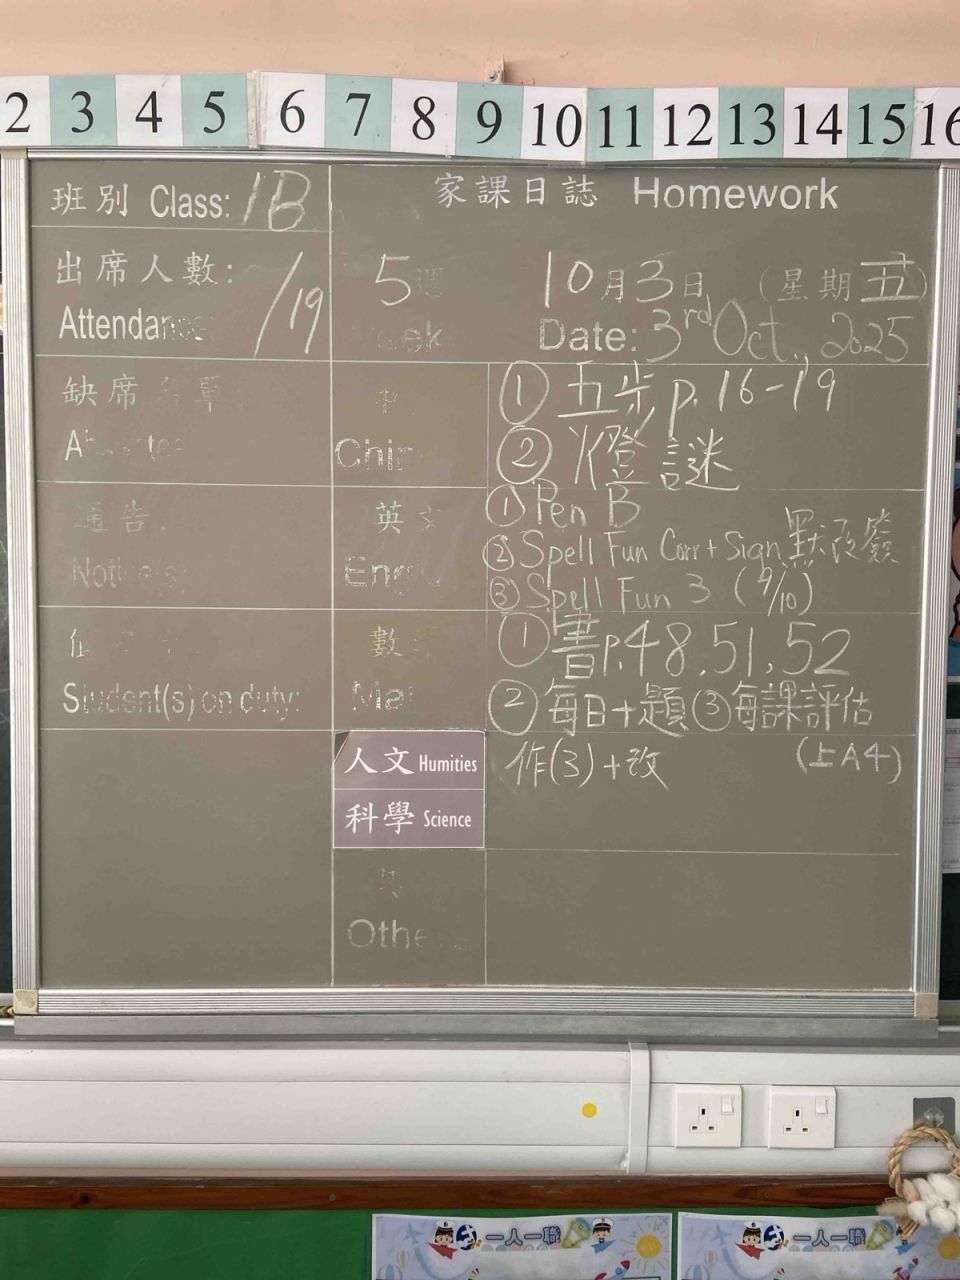 2 3 4 5 6 7 8 9 10 11 12 13 14 15 16
班別 Class: 1B
家課日誌 Homework
出席人數:
Attendance
/19
5週
Week
10月3日 (星期五)
Date: 3rd Oct., 2025
缺席名單
中
Chin
① 五步 p. 16-19
② 燈謎
通告
Notice(s)
英文
Eng
① Pen B
② Spell Fun Corr + Sign 默改簽
③ Spell Fun 3 (9/10)
Student(s) on duty:
數
Mat
① 書p.48,51,52
② 每日十題 ③ 每課評估
(上A4)
人文 Humities
作(3)+改
科學 Science
其
Others
一人一職
一人一職